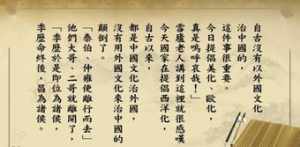 自古沒有以外國文化
治中國的，
這件事很重要。
今日提倡美化、歐化，
真是嗚呼哀哉！」
雪廬老人講到這裡就很感嘆
今天國家在提倡西洋化，
自古以來，
都是中國文化治外國，
沒有用外國文化來治中國的
顛倒了。
「泰伯、仲雍便離行而去」
他們大哥、二哥就離開了，
「季歷於是即位為諸侯。
季歷命終後，昌為諸侯。